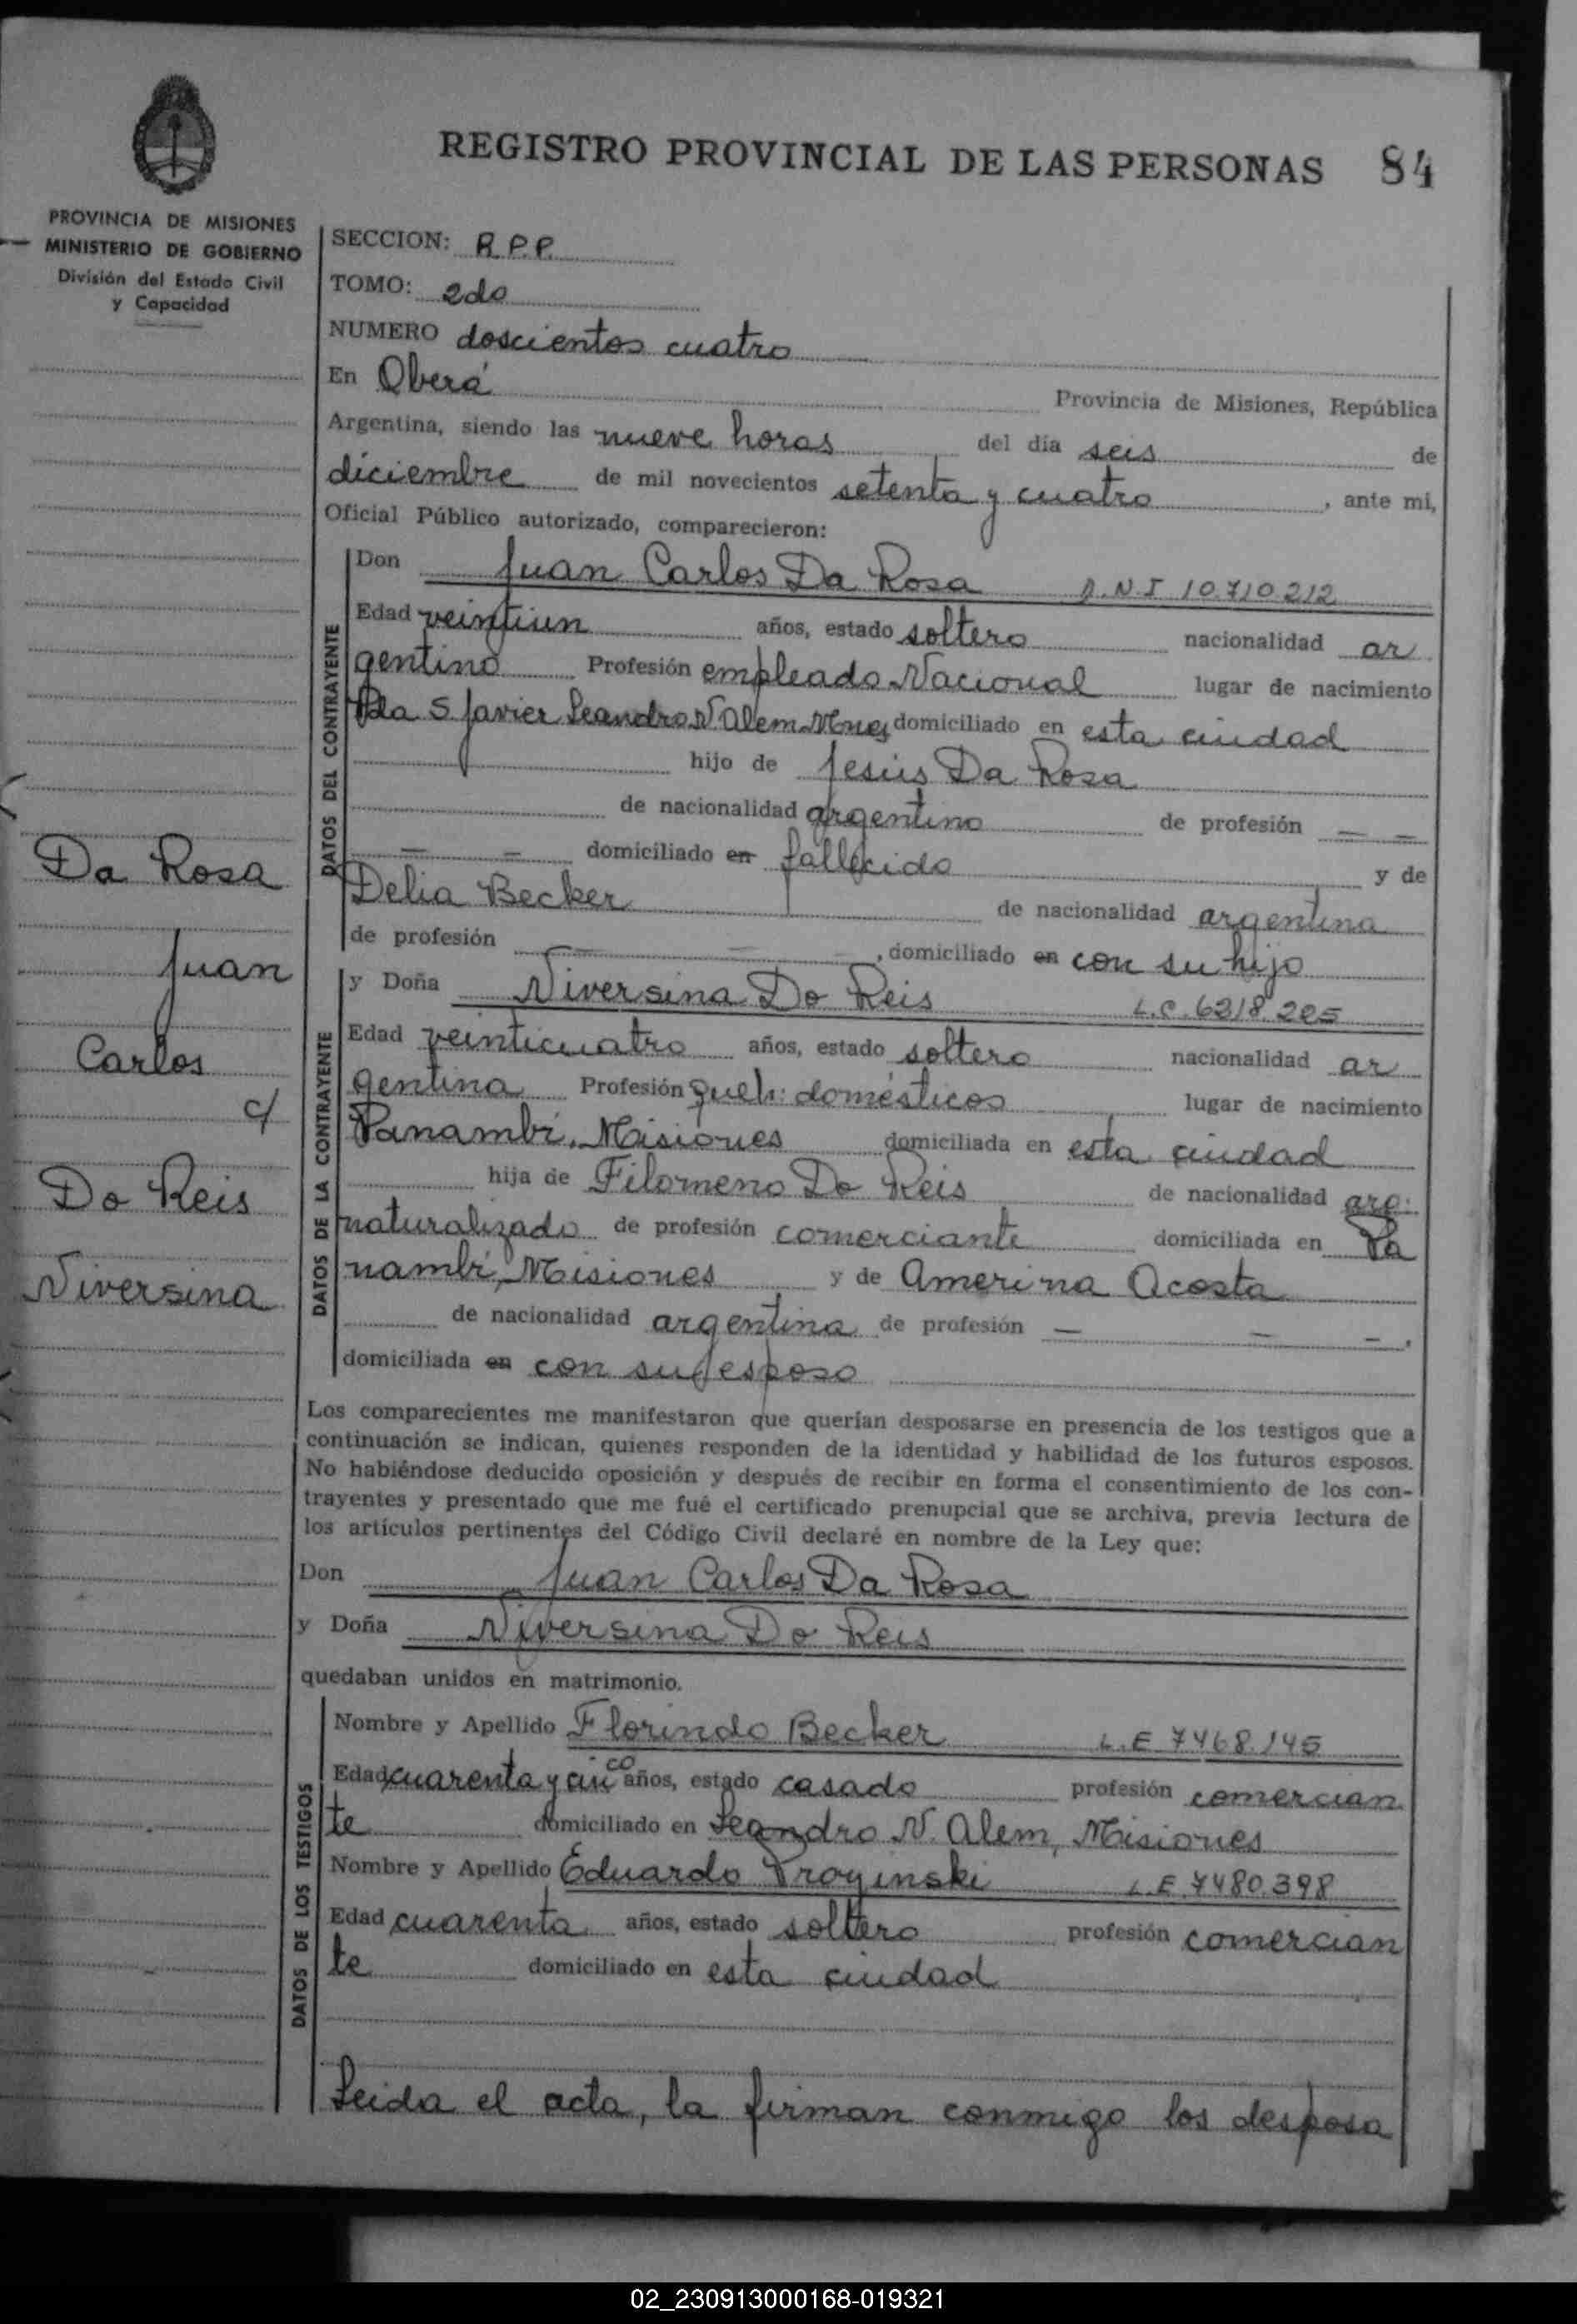 REGISTRO PROVINCIAL DE LAS PERSONAS 84
PROVINCIA DE MISIONES
MINISTERIO DE GOBIERNO
División del Estado Civil
y Capacidad
SECCION: R.P.P.
TOMO: 2do
NUMERO doscientos cuatro
En Oberá Provincia de Misiones, República
Argentina, siendo las nueve horas del día seis de
diciembre de mil novecientos setenta y cuatro, ante mi,
Oficial Público autorizado, comparecieron:
DATOS DEL CONTRAYENTE
Don Juan Carlos Da Rosa D.N.I 10.710.212
Edad veintiun años, estado soltero nacionalidad ar
gentino Profesión empleado Nacional lugar de nacimiento
S. Javier Leandro N Alem Mnes domiciliado en esta ciudad
hijo de Jesús Da Rosa
de nacionalidad argentino de profesión — —
— — domiciliado en fallecido y de
Delia Becker de nacionalidad argentina
de profesión — — —, domiciliado en con su hijo
DATOS DE LA CONTRAYENTE
y Doña Niversina Do Reis L.C. 6218.205
Edad veinticuatro años, estado soltera nacionalidad ar
gentina Profesión queh: domésticos lugar de nacimiento
Panambí, Misiones domiciliada en esta ciudad
hija de Filomeno Do Reis de nacionalidad arg:
naturalizado de profesión comerciante domiciliada en Pa
nambí, Misiones y de Amerina Acosta
de nacionalidad argentina de profesión — — —,
domiciliada en con su esposo
Da Rosa
Juan
Carlos
c/
Do Reis
Niversina
Los comparecientes me manifestaron que querían desposarse en presencia de los testigos que a
continuación se indican, quienes responden de la identidad y habilidad de los futuros esposos.
No habiéndose deducido oposición y después de recibir en forma el consentimiento de los con-
trayentes y presentado que me fué el certificado prenupcial que se archiva, previa lectura de
los artículos pertinentes del Código Civil declaré en nombre de la Ley que:
Don Juan Carlos Da Rosa
y Doña Niversina Do Reis
quedaban unidos en matrimonio.
DATOS DE LOS TESTIGOS
Nombre y Apellido Florindo Becker L.E 7468.145
Edad cuarenta y cinco años, estado casado profesión comercian
te domiciliado en Leandro N. Alem, Misiones
Nombre y Apellido Eduardo Proyinski L.E. 7480.398
Edad cuarenta años, estado soltero profesión comercian
te domiciliado en esta ciudad
Leida el acta, la firman conmigo los desposa
02_230913000168-019321